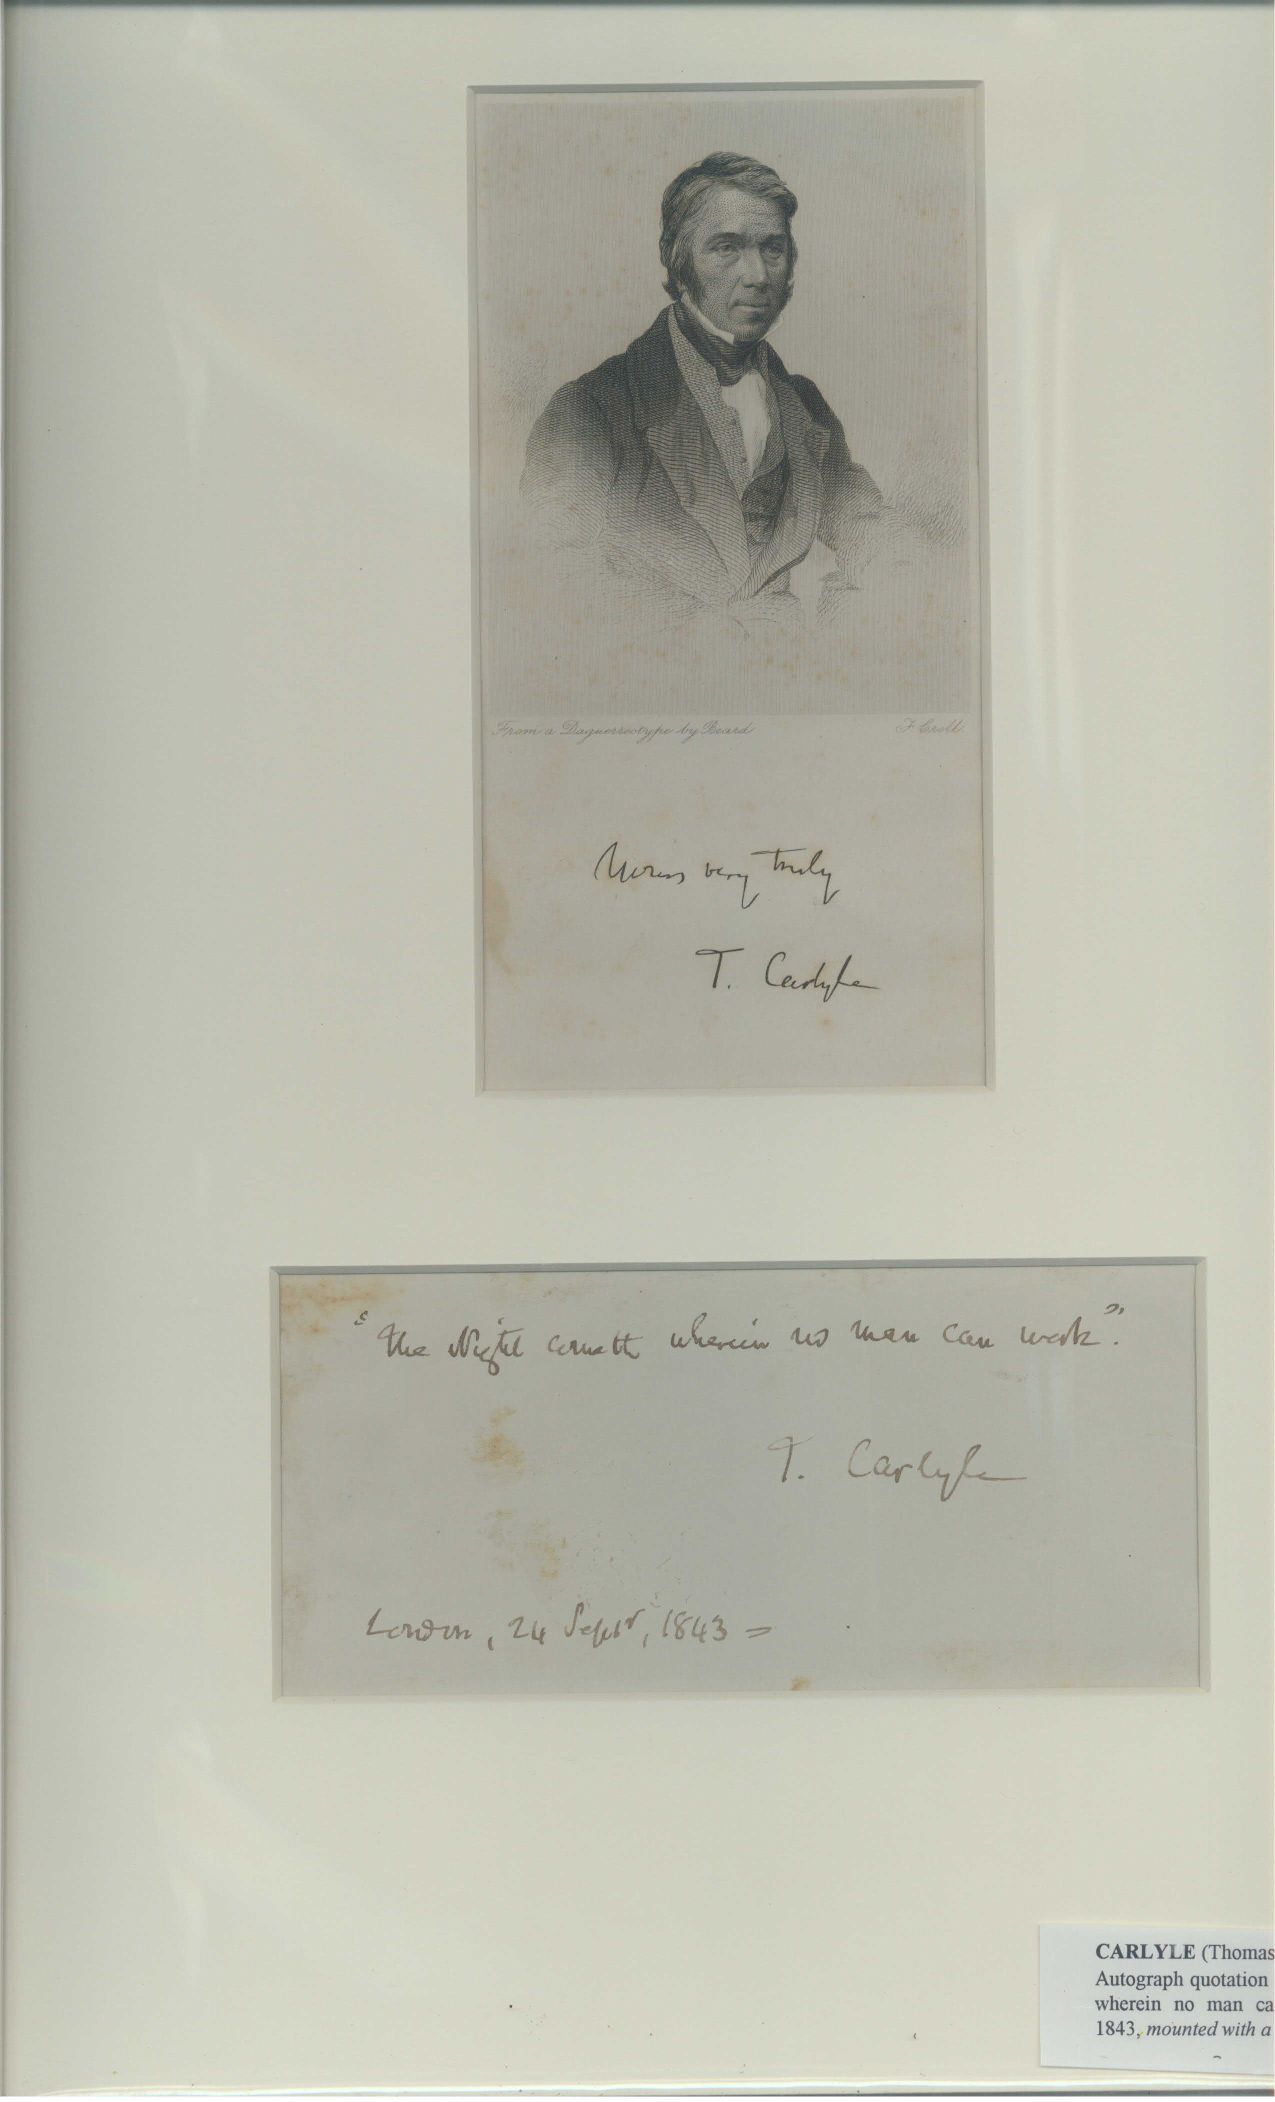 From a Daguerreotype by Beard
F Croll.
Yours very truly
T. Carlyle
"The Night cometh wherein no man can work".
T. Carlyle
London, 24 Septr, 1843 =
CARLYLE (Thomas
Autograph quotation
wherein no man ca
1843, mounted with a